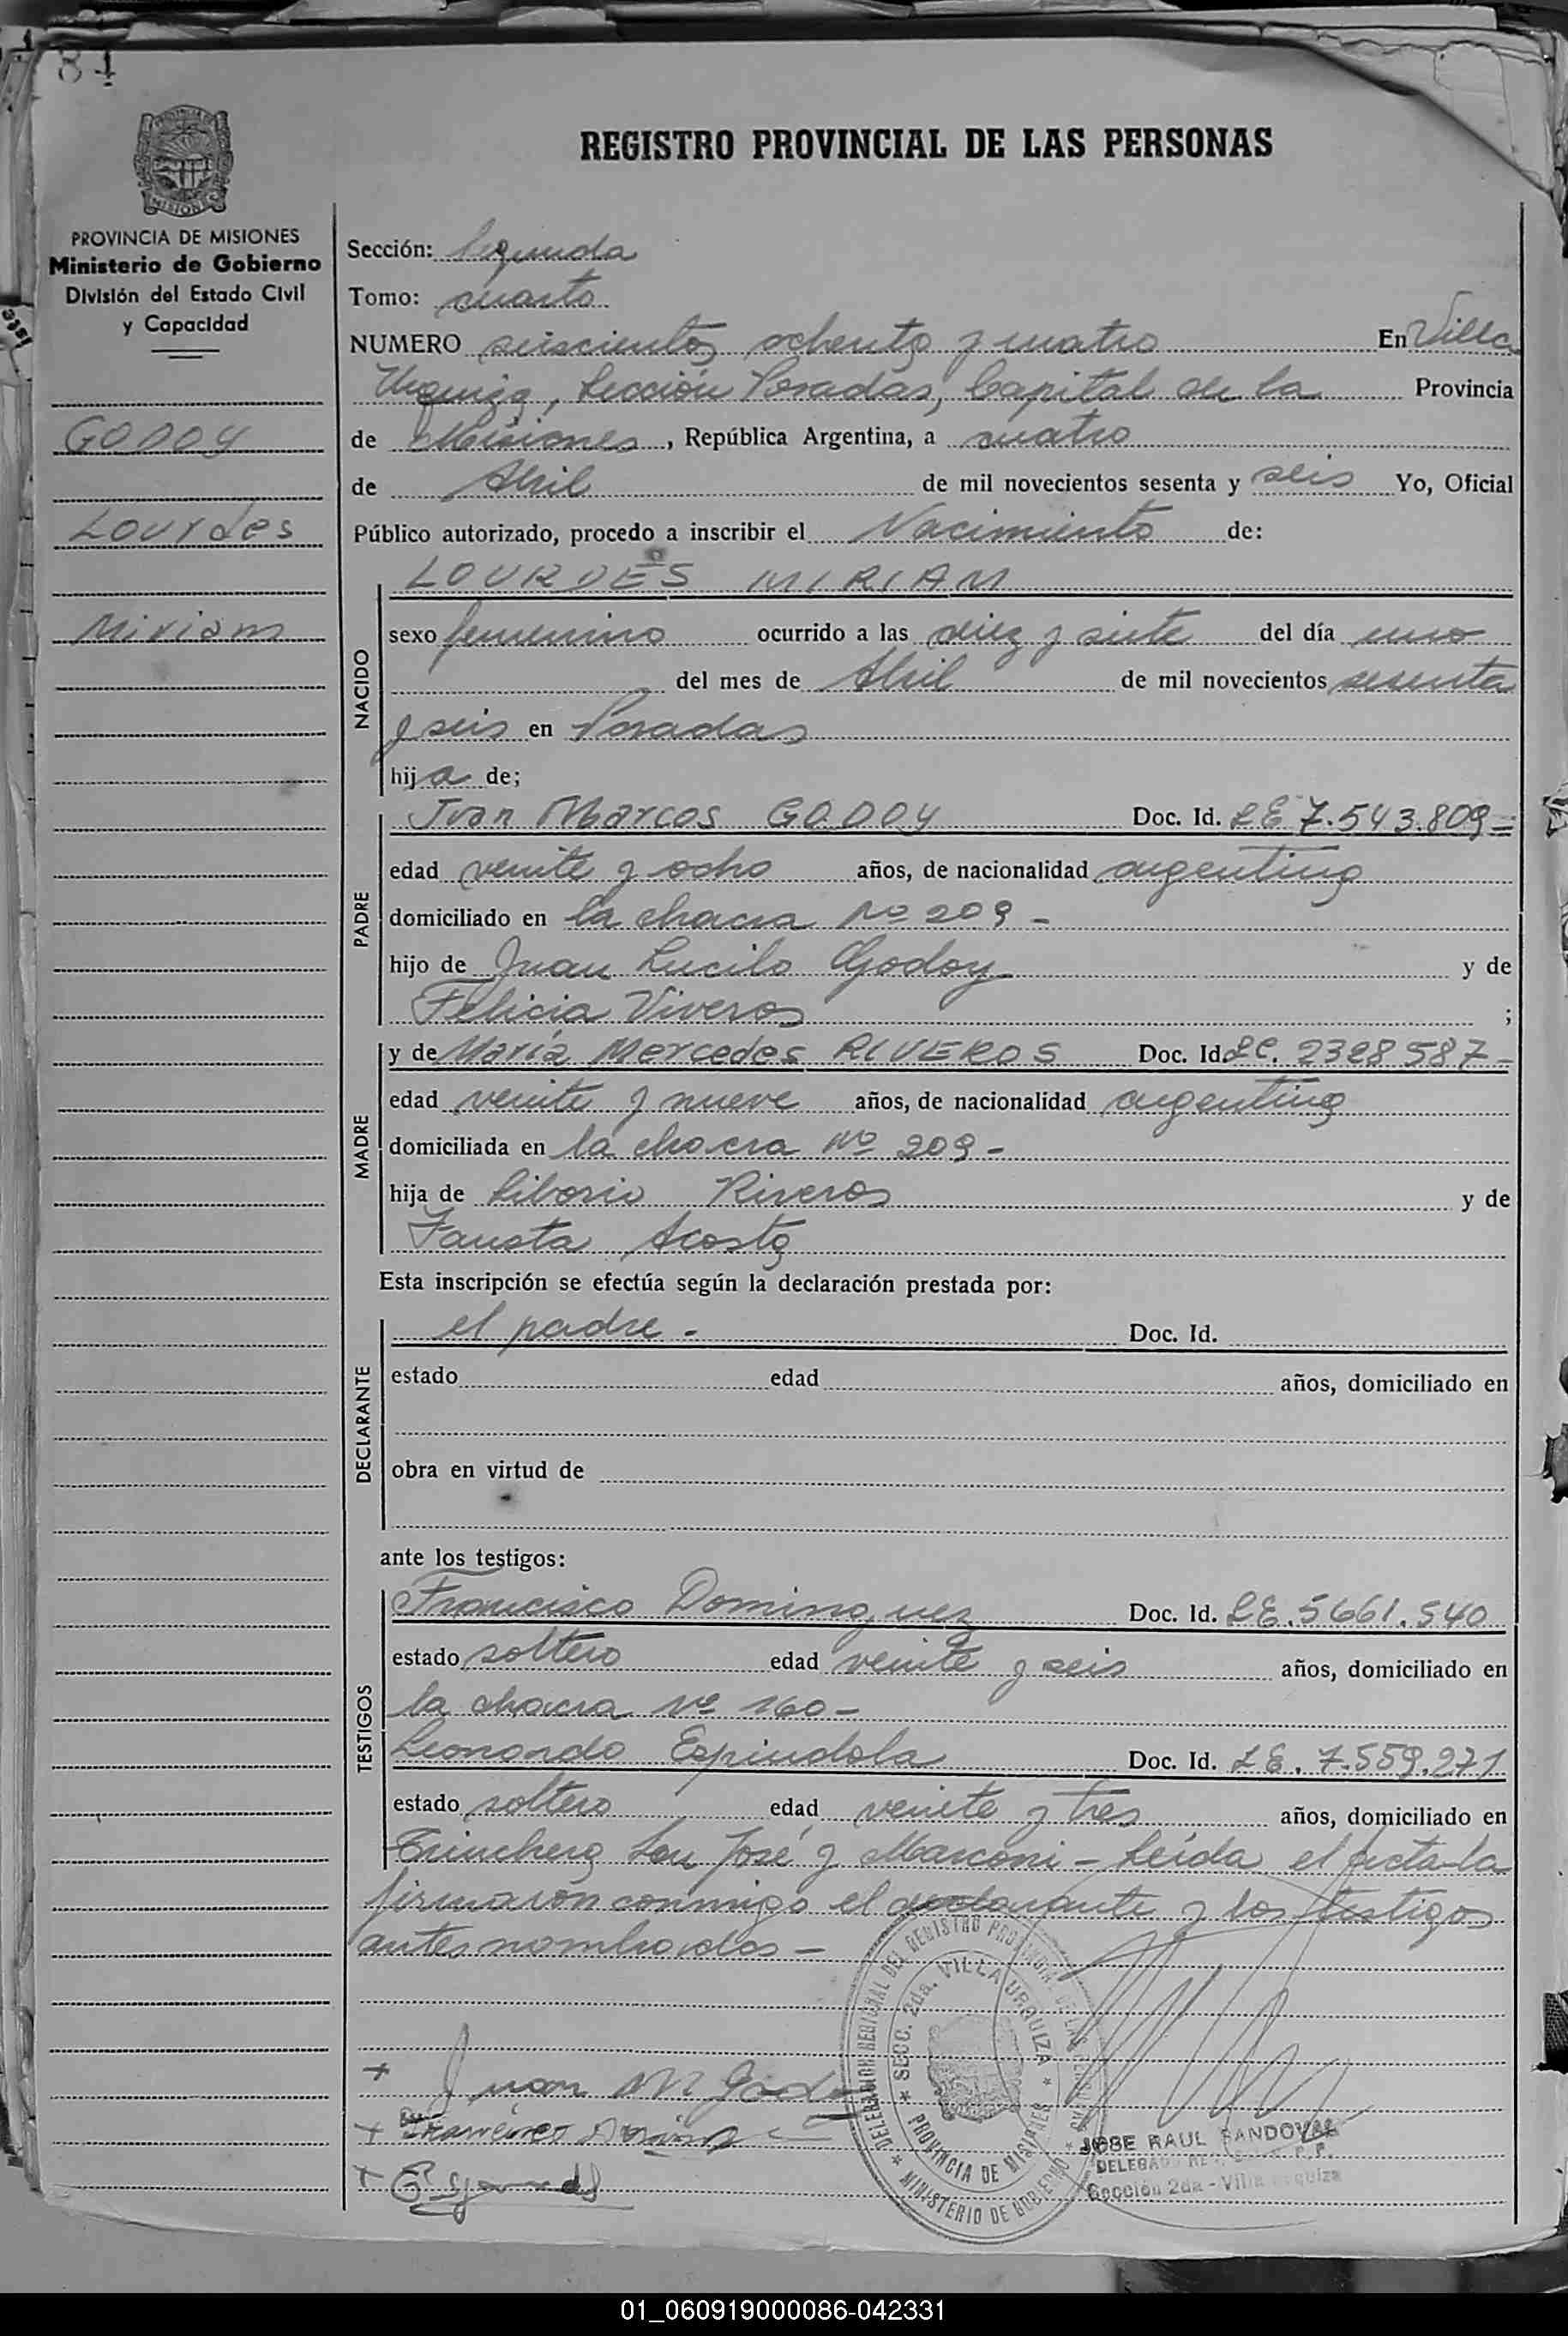 84
REGISTRO PROVINCIAL DE LAS PERSONAS
MISIONES
PROVINCIA DE MISIONES
Ministerio de Gobierno
División del Estado Civil
y Capacidad
GODOY
Lourdes
Miriam
Sección: Segunda
Tomo: cuarto
NUMERO seiscientos ochenta y cuatro En Villa
Urquiza, Sección Posadas, Capital de la Provincia
de Misiones, República Argentina, a cuatro
de Abril de mil novecientos sesenta y seis Yo, Oficial
Público autorizado, procedo a inscribir el Nacimiento de:
NACIDO
LOURDES MIRIAM
sexo femenino ocurrido a las diez y siete del día uno
del mes de Abril de mil novecientos sesenta
y seis en Posadas
hija de;
PADRE
Juan Marcos GODOY Doc. Id. LE 7.543.809=
edad veinte y ocho años, de nacionalidad argentina
domiciliado en la chacra Nº 209 -
hijo de Juan Lucilo Godoy y de
Felicia Viveros ;
MADRE
y de María Mercedes RIVEROS Doc. Id. LC. 2328587=
edad veinte y nueve años, de nacionalidad argentina
domiciliada en la chacra Nº 209-
hija de Liborio Riveros y de
Fausta Acosta
Esta inscripción se efectúa según la declaración prestada por:
DECLARANTE
el padre - Doc. Id.
estado edad años, domiciliado en
obra en virtud de
ante los testigos:
TESTIGOS
Francisco Dominguez Doc. Id. LE. 5661.540
estado soltero edad veinte y seis años, domiciliado en
la chacra Nº 160-
Leonardo Espindola Doc. Id. LE. 7.559.271
estado soltero edad veinte y tres años, domiciliado en
Trinchera San José y Marconi - Leída el acta la
firmaron conmigo el declarante y los testigos
antes nombrados -
DELEGACION REGIONAL DEL REGISTRO PROVINCIAL DE LAS PERSONAS
* SECC. 2da. VILLA URQUIZA *
PROVINCIA DE MISIONES
* MINISTERIO DE GOBIERNO *
+ Juan M Godoy
+ Francisco
+
JOSE RAUL SANDOVAL
DELEGADO
Sección 2da - Villa Urquiza
01_060919000086-042331